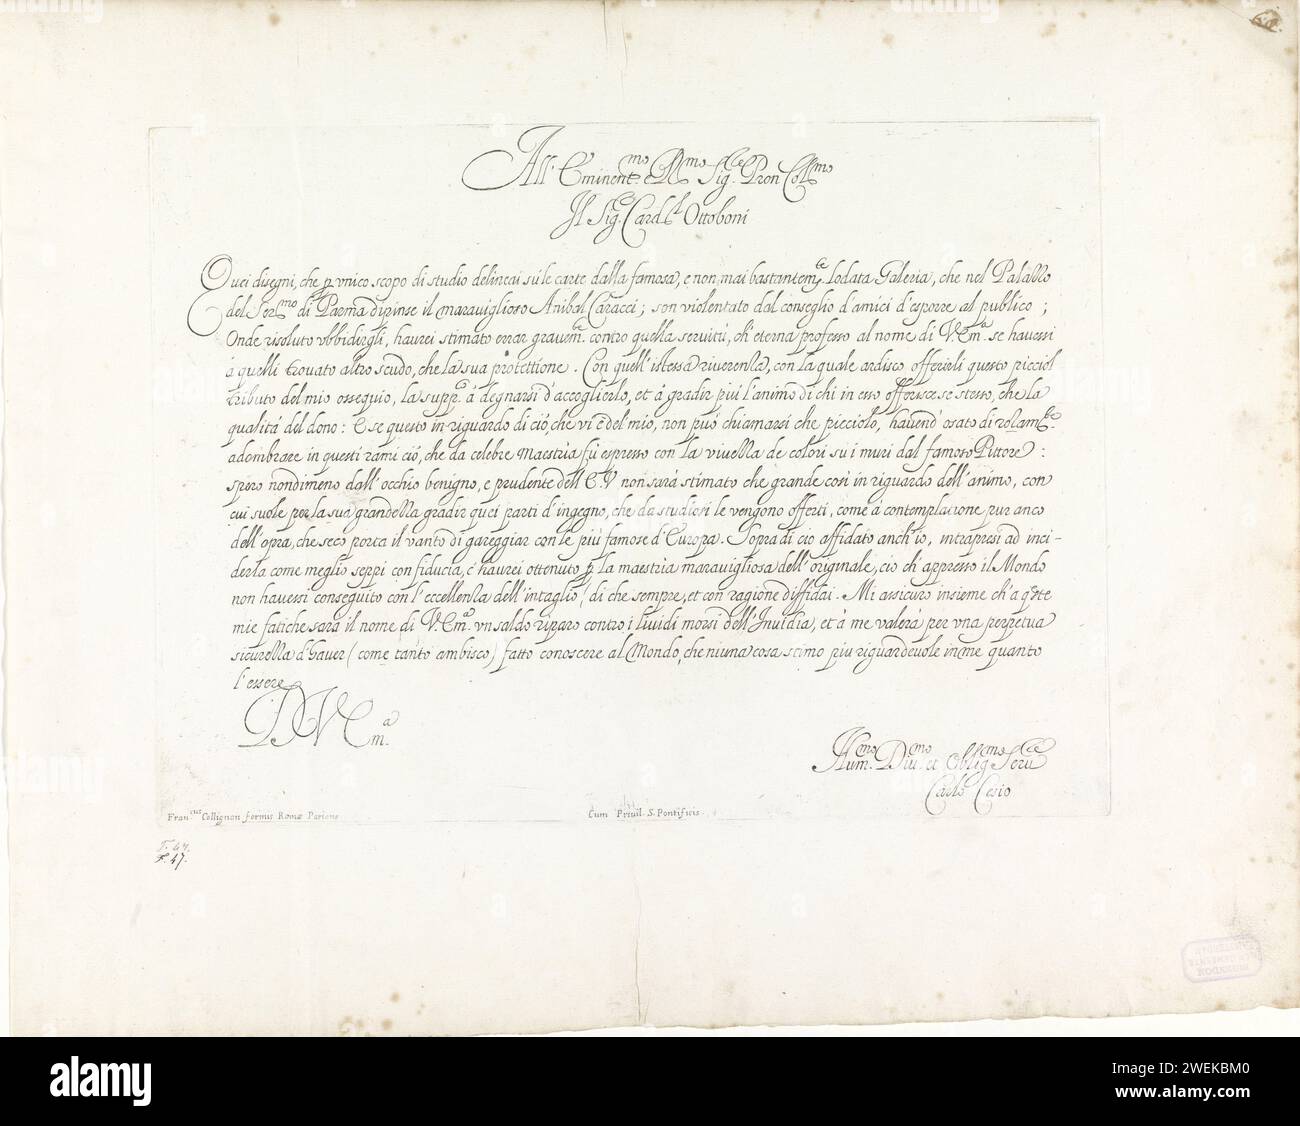 All' Eminent.mo e R.mo Sig.re Pron Coll.mo
Il Sig. Card.l Ottoboni
Quei disegni, che p vnico scopo di studio delineai sù le carte dalla famosa, e non mai bastantem.te lodata Galeria, che nel Palazzo
del Ser.mo di Parma dipinse il maraviglioso Anibal Caracci; son violentato dal conseglio d'amici d'esporre al publico;
Onde risoluto vbbidirgli, haurei stimato errar grauem.te contro quella seruitù, ch'eterna professo al nome di V. Em.a se hauessi
à quelli trouato altro scudo, che la sua protettione. Con quell'istessa riuerenza, con la quale ardisco offerirli questo picciol
tributo del mio ossequio, la supp.o à degnarsi d'accoglierlo, et à gradir più l'animo di chi in esso offerisce se stesso, che la
qualità del dono: E se questo in riguardo di ciò, che vi è del mio, non può chiamarsi che picciolo, hauend'osato di rozam.te
adombrare in questi rami ciò, che da celebre maestria fù espresso con la viuezza de colori su i muri dal famoso Pittore:
spero nondimeno dall'occhio benigno, e prudente dell'E.V. non sarà stimato che grande così in riguardo dell'animo, con
cui suole per la sua grandezza gradir quei parti d'ingegno, che da studiosi le vengono offerti, come à contemplatione pur anco
dell'opra, che seco porta il vanto di gareggiar con le più famose d'Europa. Sopra di ciò affidato anch'io, intrapresi ad inci-
derla come meglio seppi con fiducia, c'haurei ottenuto p la maestria marauigliosa dell'originale, ciò ch'appresso il Mondo
non hauessi conseguito con l'eccellenza dell'intaglio, di che sempre, et con ragione diffidai. Mi assicuro insieme ch'a q.ste
mie fatiche sarà il nome di V. Em.a vn saldo riparo contro i liuidi morsi dell'Inuidia, et à me valerà per vna perpetua
sicurezza d'hauer (come tanto ambisco) fatto conoscere al Mondo, che niuna cosa stimo più riguardeuole in me quanto
l'essere
D V Em.a
Hum.mo Diu.mo et Oblig.mo Seru.re
Carlo Cesio
Fran.cus Collignon formis Romæ Parione
Cum Priuil. S. Pontificis.
F. 47.
F. 47.
alamy
Image ID: 2WEKBM0
www.alamy.com